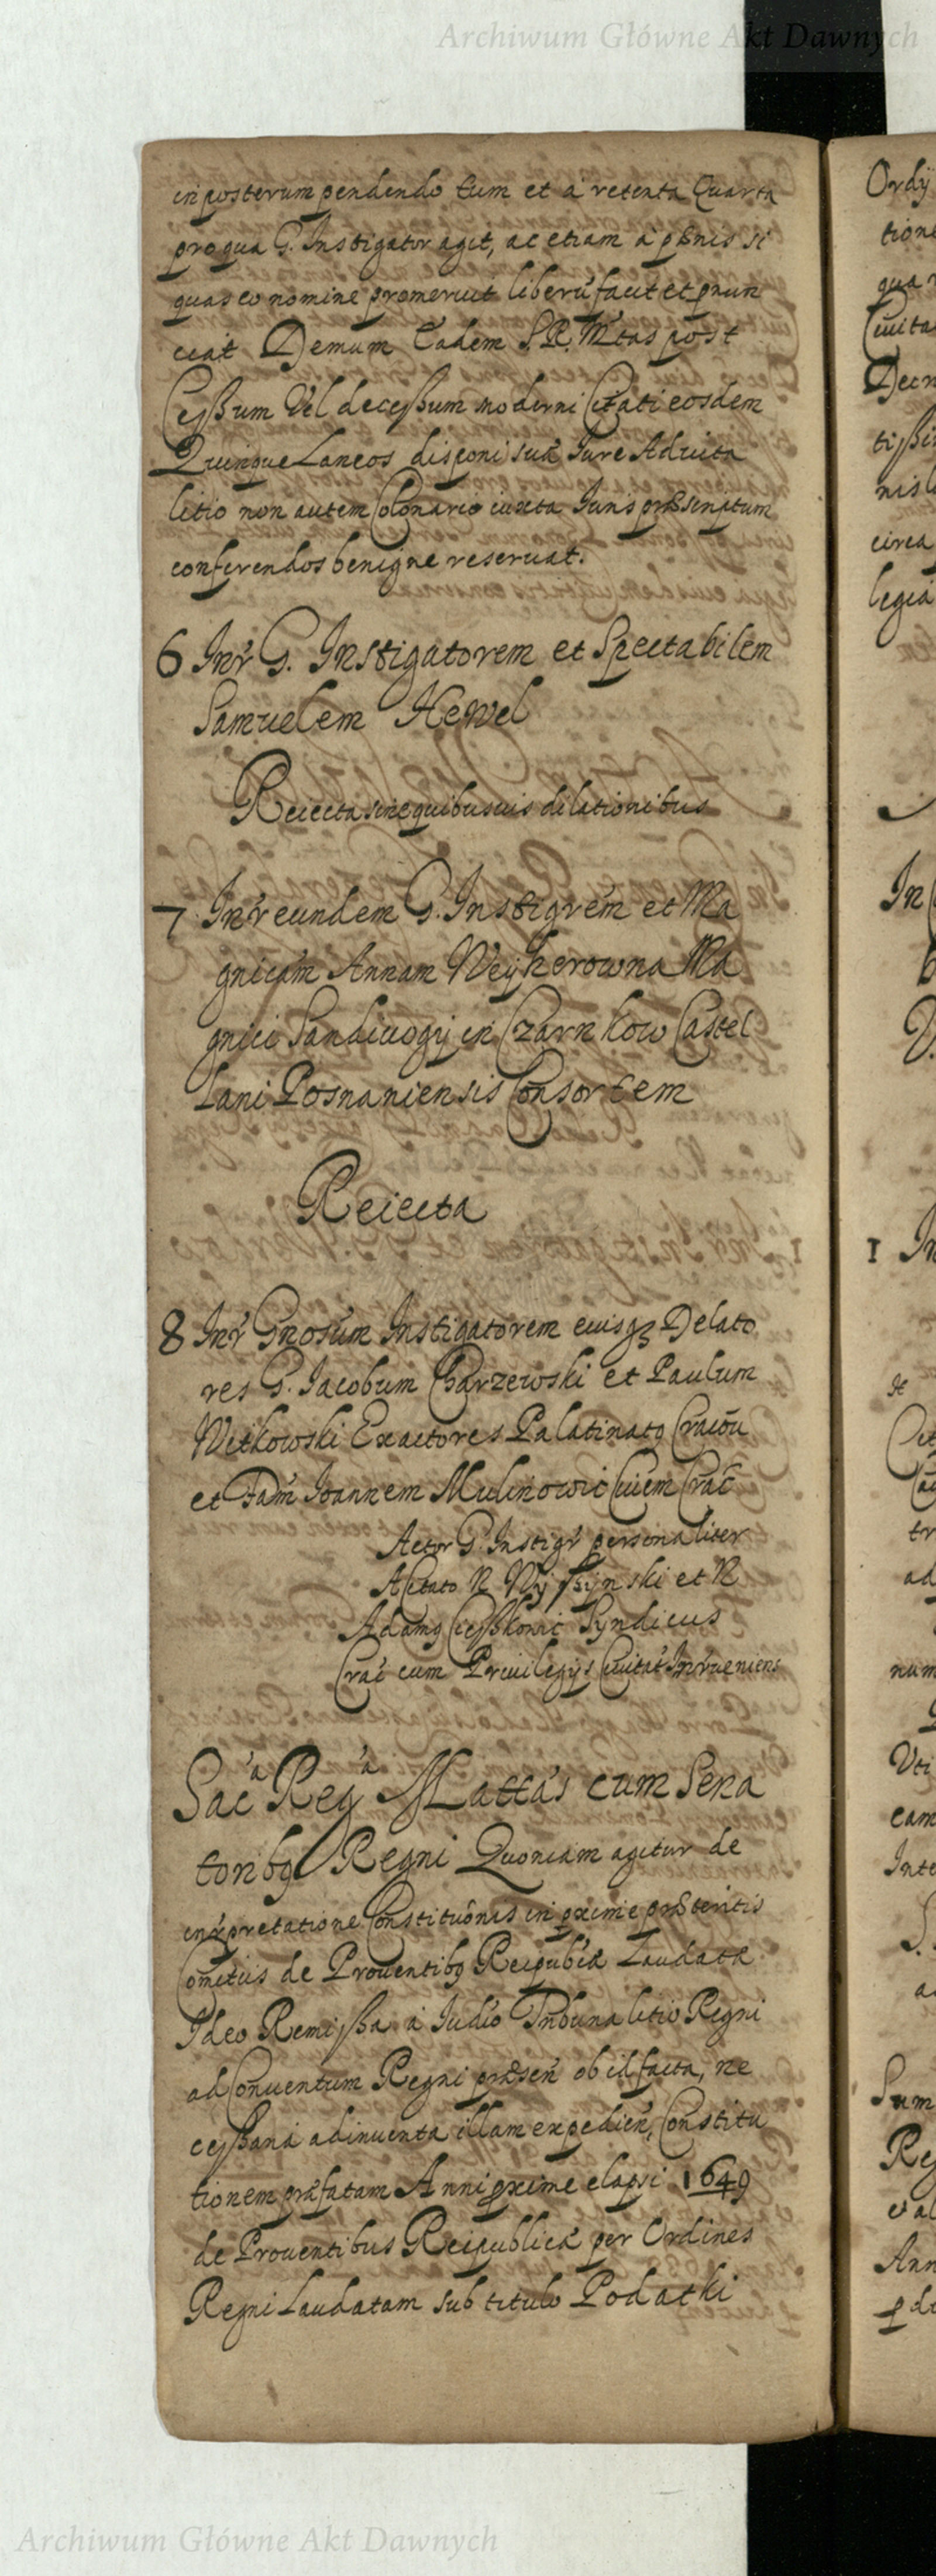 Archiwum Główne Akt Dawnych
in posterum pendendo tum et a retenta Quarta
pro qua G. Instigator agit, ac etiam à pænis si
quas eo nomine promeruit liberũ facit et pnun
ciat Demum Eadem S. R. Mtas post
Cessum Vel decessum moderni Citati eosdem
Quinque Laneos disponi suæ Iure Advita
litio non autem Colonario iuxta Iuris præscriptum
conferendos benigne reseruat.
6 Inr̃ G. Instigatorem et Spectabilem
Samuelem Hewel
Reiecta sine quibusuis dilationibus
7 Inr̃ eundem G. Instigrem et Ma
gnicam Annam Weyherowna Ma
gnici Sandiuogij in Czarnkow Castel
lani Posnaniensis Consortem
Reiecta
8 Inr̃ Gnosum Instigatorem euisqz Delato
res G. Iacobum Charzewski et Paulum
Witkowski Exactores Palatinatq Cracõu
et Fam Ioannem Mulinowic Ciuem Crac̃
Actor G. Instigr̃ personaliter
A Citato N Wyssynski et N
Adamq Ciesskowic Syndicus
Crac̃ cum Priuilegijs Ciuitat Inrueniens
Saca Rega Mattas cum Sena
toribq Regni Quoniam agitur de
inr̃pretatione Constituõnis in pxime præteritis
Comitiis de Prouentibq Reipublicæ Laudatæ
Ideo Remissa a Iudio Tribunalitio Regni
ad Conuentum Regni præseñ ob id facta, ne
cessaria adinuenta illam expedieñ, Constitu
tionem præfatam Anni pxime elapsi 1649
de Prouentibus Reipublicæ per Ordines
Regni Laudatam sub titulo Podatki
Ordij
tione
qua
Ciuita
Decr
tissi
nis
circa
legia
In
1 In
Cit
tr
ad
num
Vti
cam
Inte
S.
Sum
Reg
Ann
Archiwum Główne Akt Dawnych